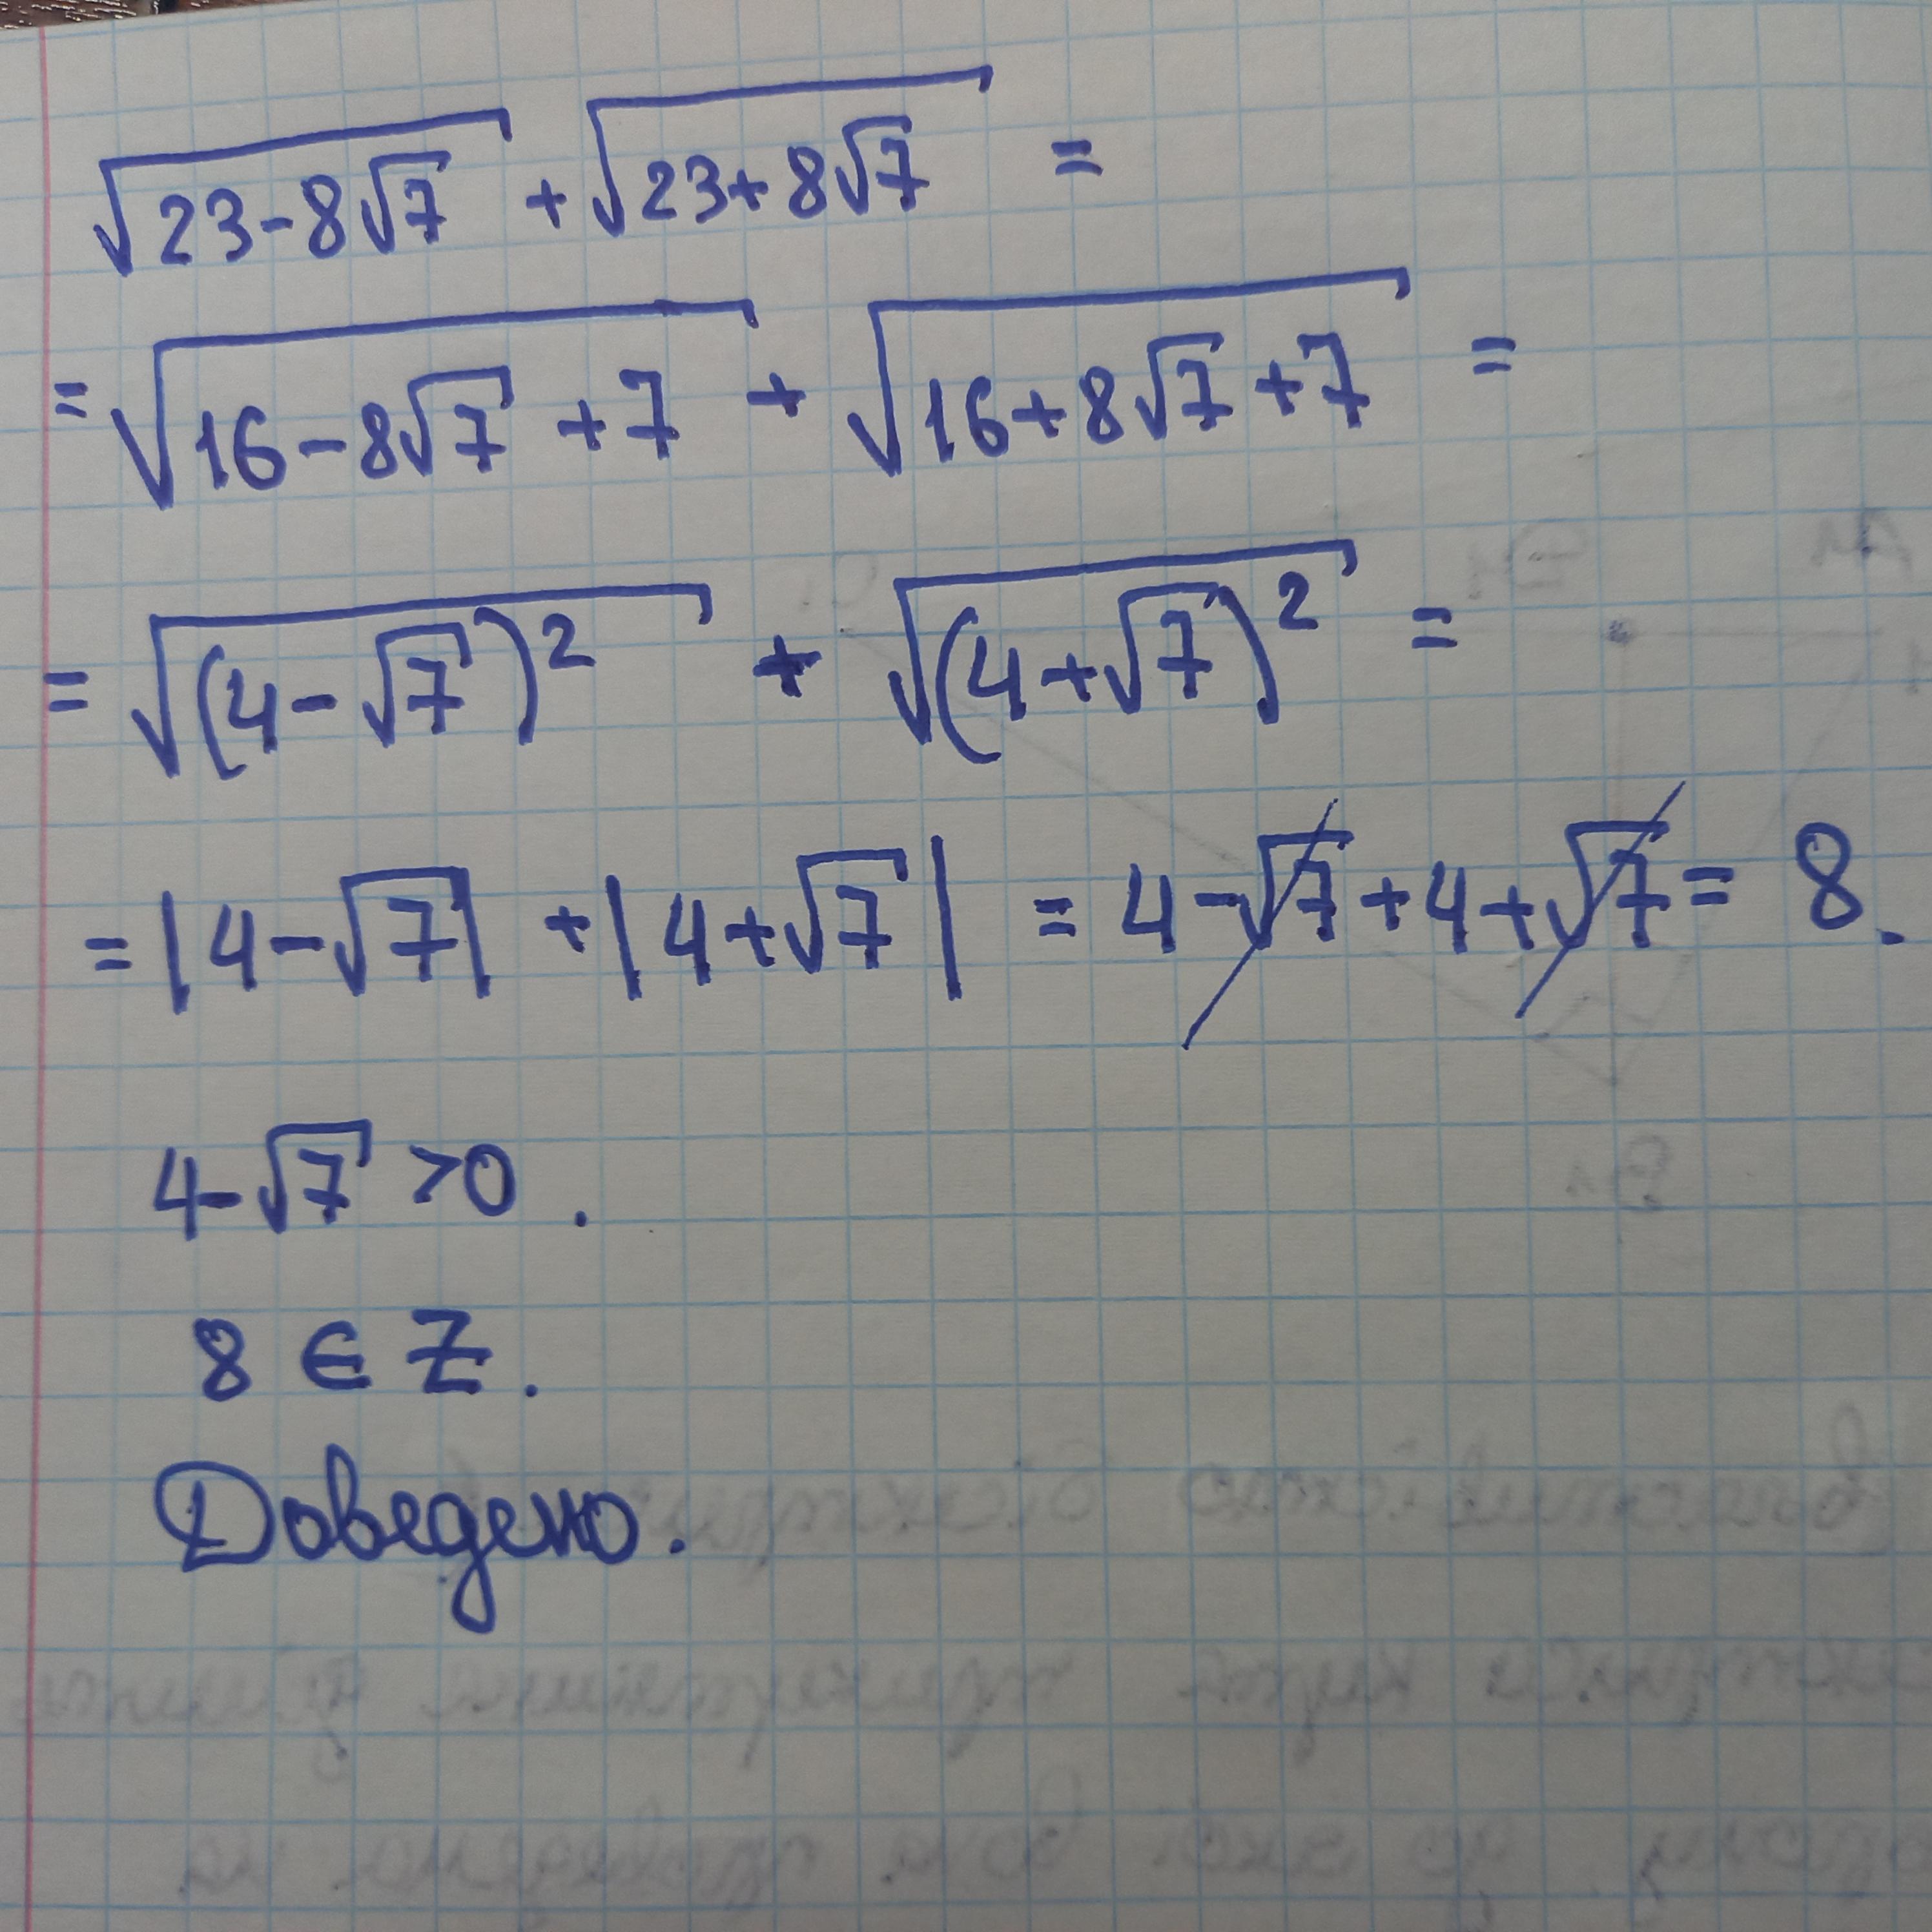 √(23-8√7) + √(23+8√7) =
= √(16-8√7+7) + √(16+8√7+7) =
= √((4-√7)²) + √((4+√7)²) =
= |4-√7| + |4+√7| = 4-√7+4+√7 = 8.
4-√7 >0.
8 ∈ Z.
Доведено.